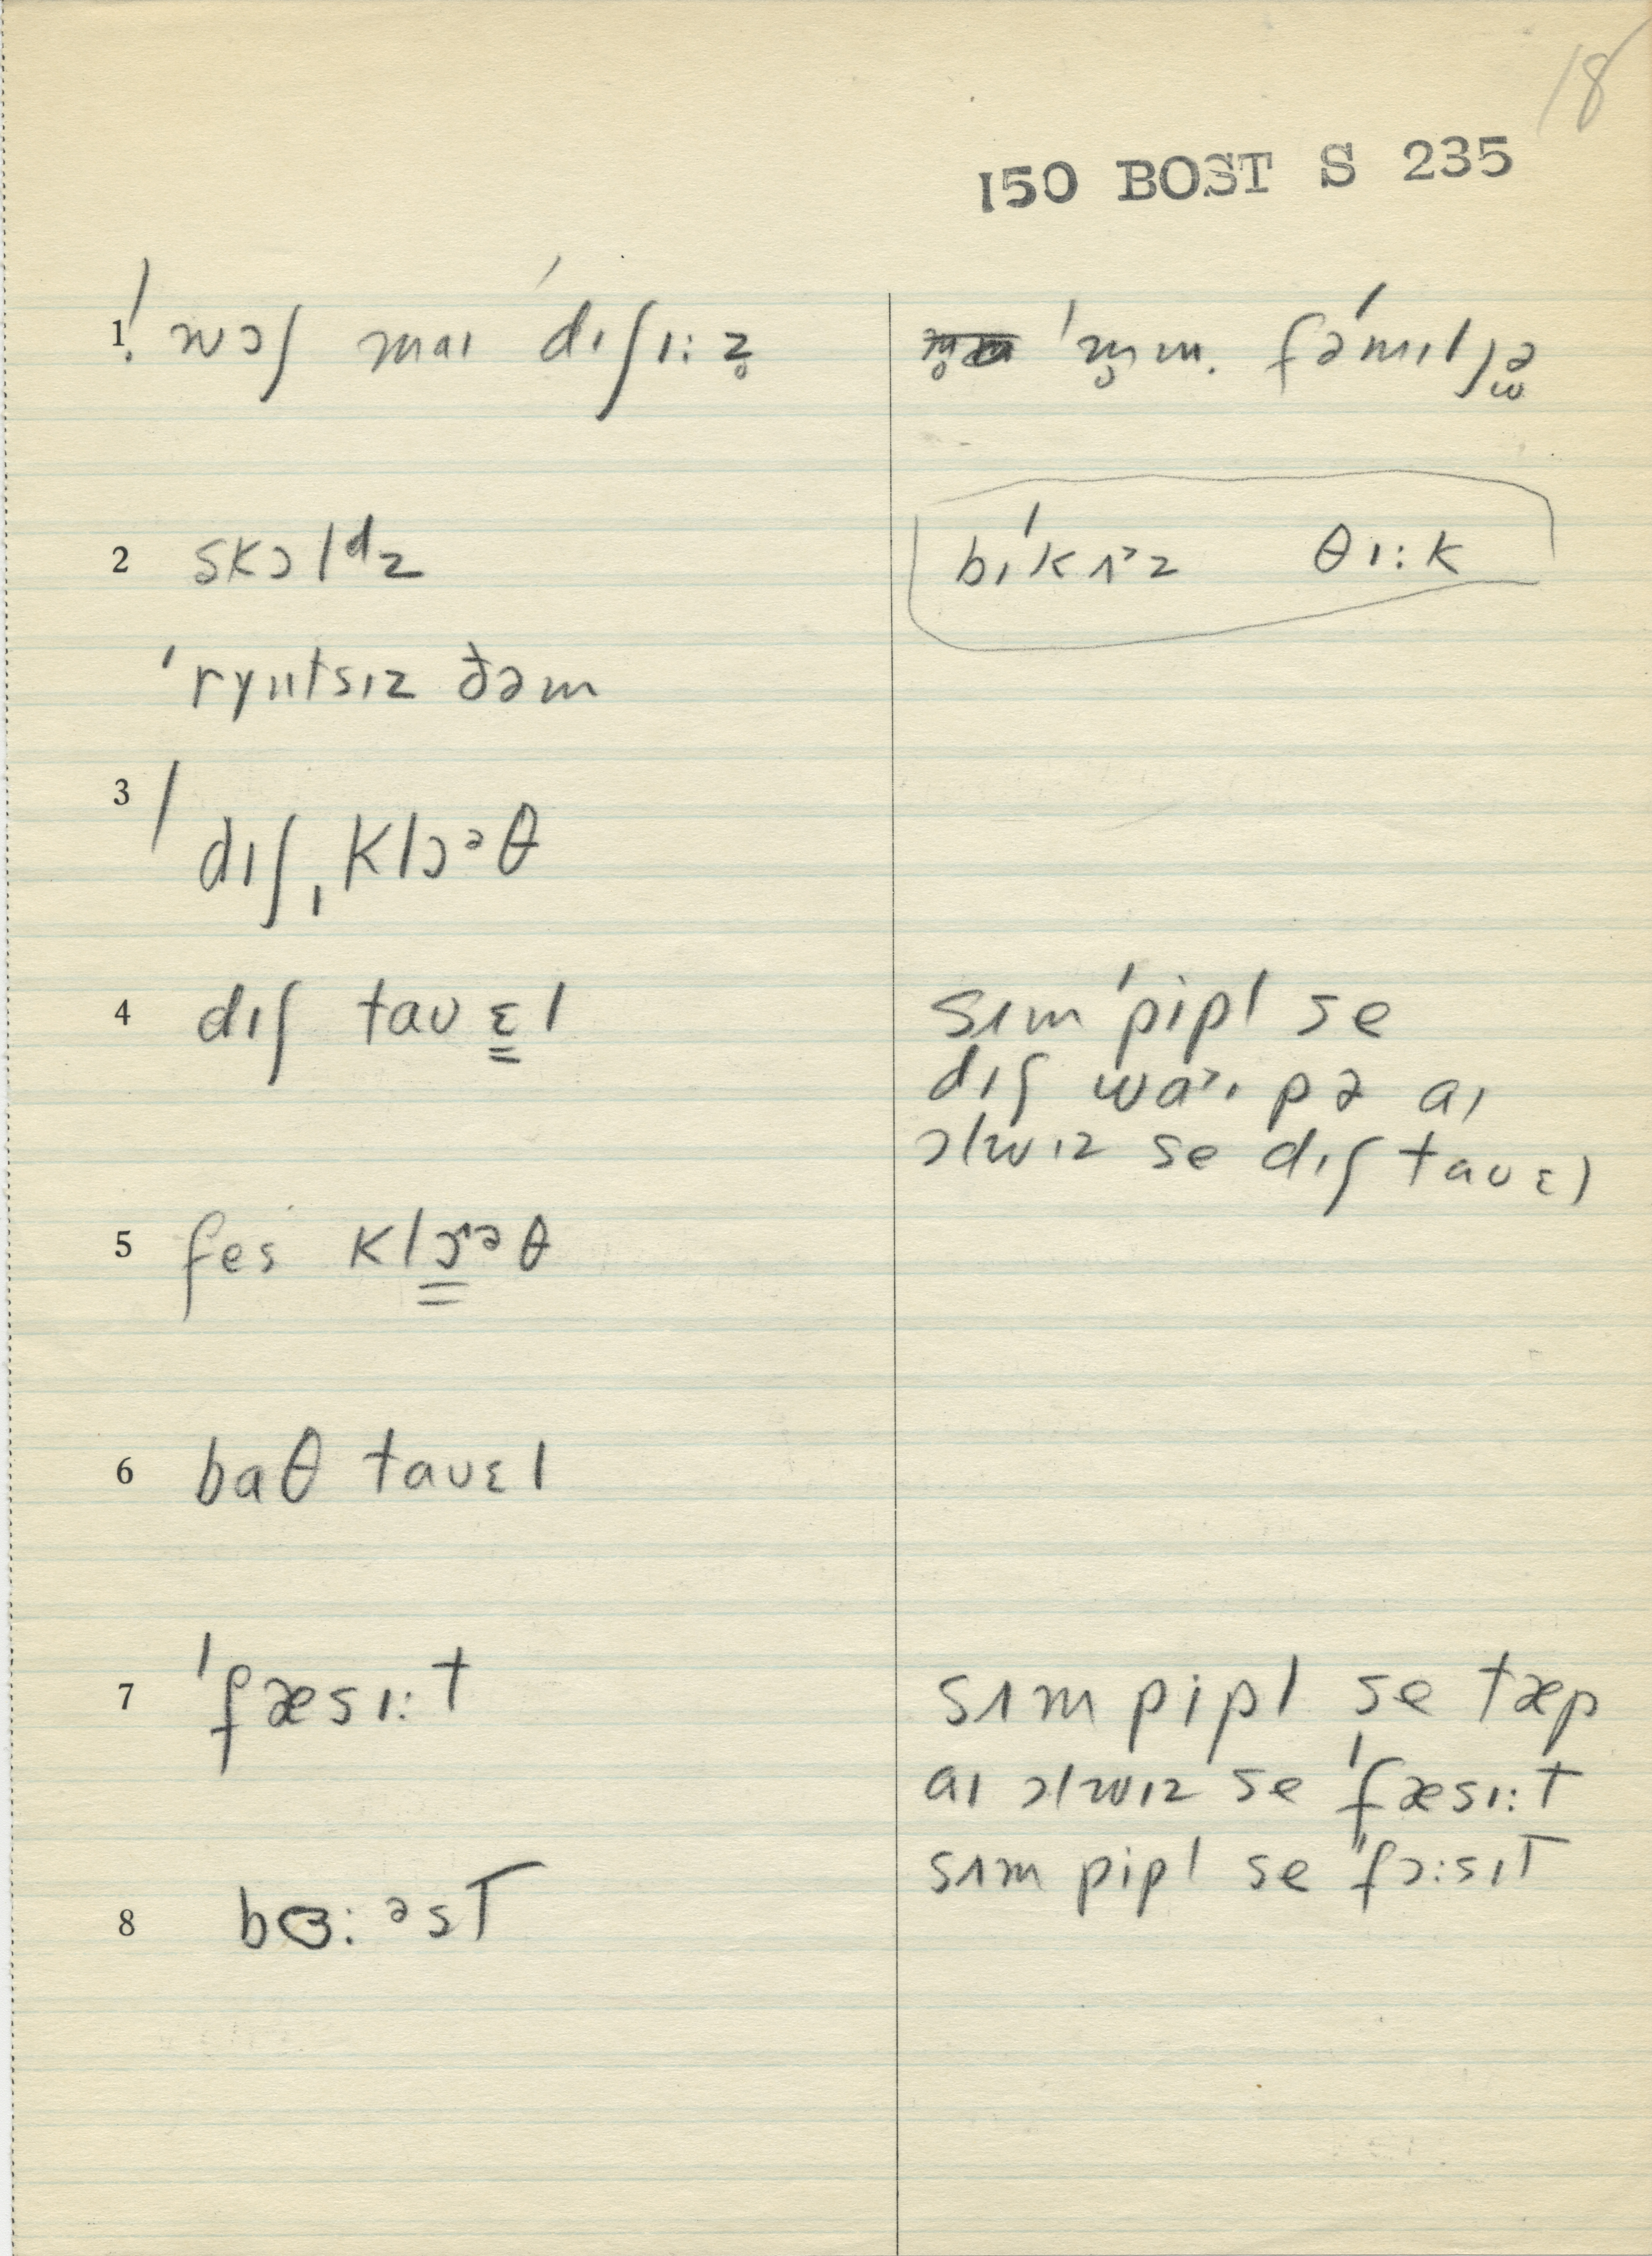 18
150 BOST S 235
1. ˈwɔʃ maɪ ˈdɪʃɪ:z̥
ˈm̥m. fəˈmɪljə
2 skɔlᵈz
bɪˈkʌᵊz θɪ:k
ˈryɪɪtsɪz ðəm
3 ˈdɪʃˌklɔᵊθ
4 dɪʃ taʊɛ̳l
sʌm ˈpipl se
dɪʃ waˑɪpə aɪ
ɔlwɪz se dɪʃ taʊɛl
5 fes klɔ̳ᵊθ
6 baθ taʊɛl
7 ˈfæsɪ:t
sʌm pipl se tæp
aɪ ɔlwɪz se ˈfæsɪ:t
sʌm pipl se "fɔ:sɪT
8 bɞ:ᵊsT